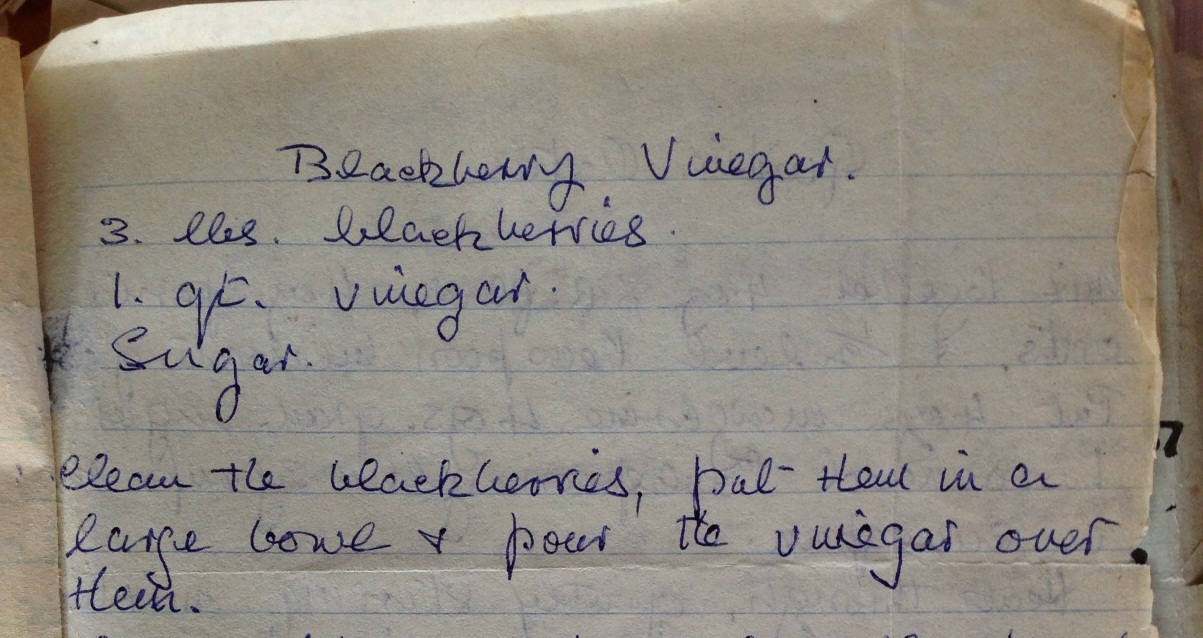 Blackberry Vinegar.
3. lbs. blackberries.
1. qt. vinegar.
Sugar.
Clean the blackberries, put them in a
large bowl & pour the vinegar over
them.